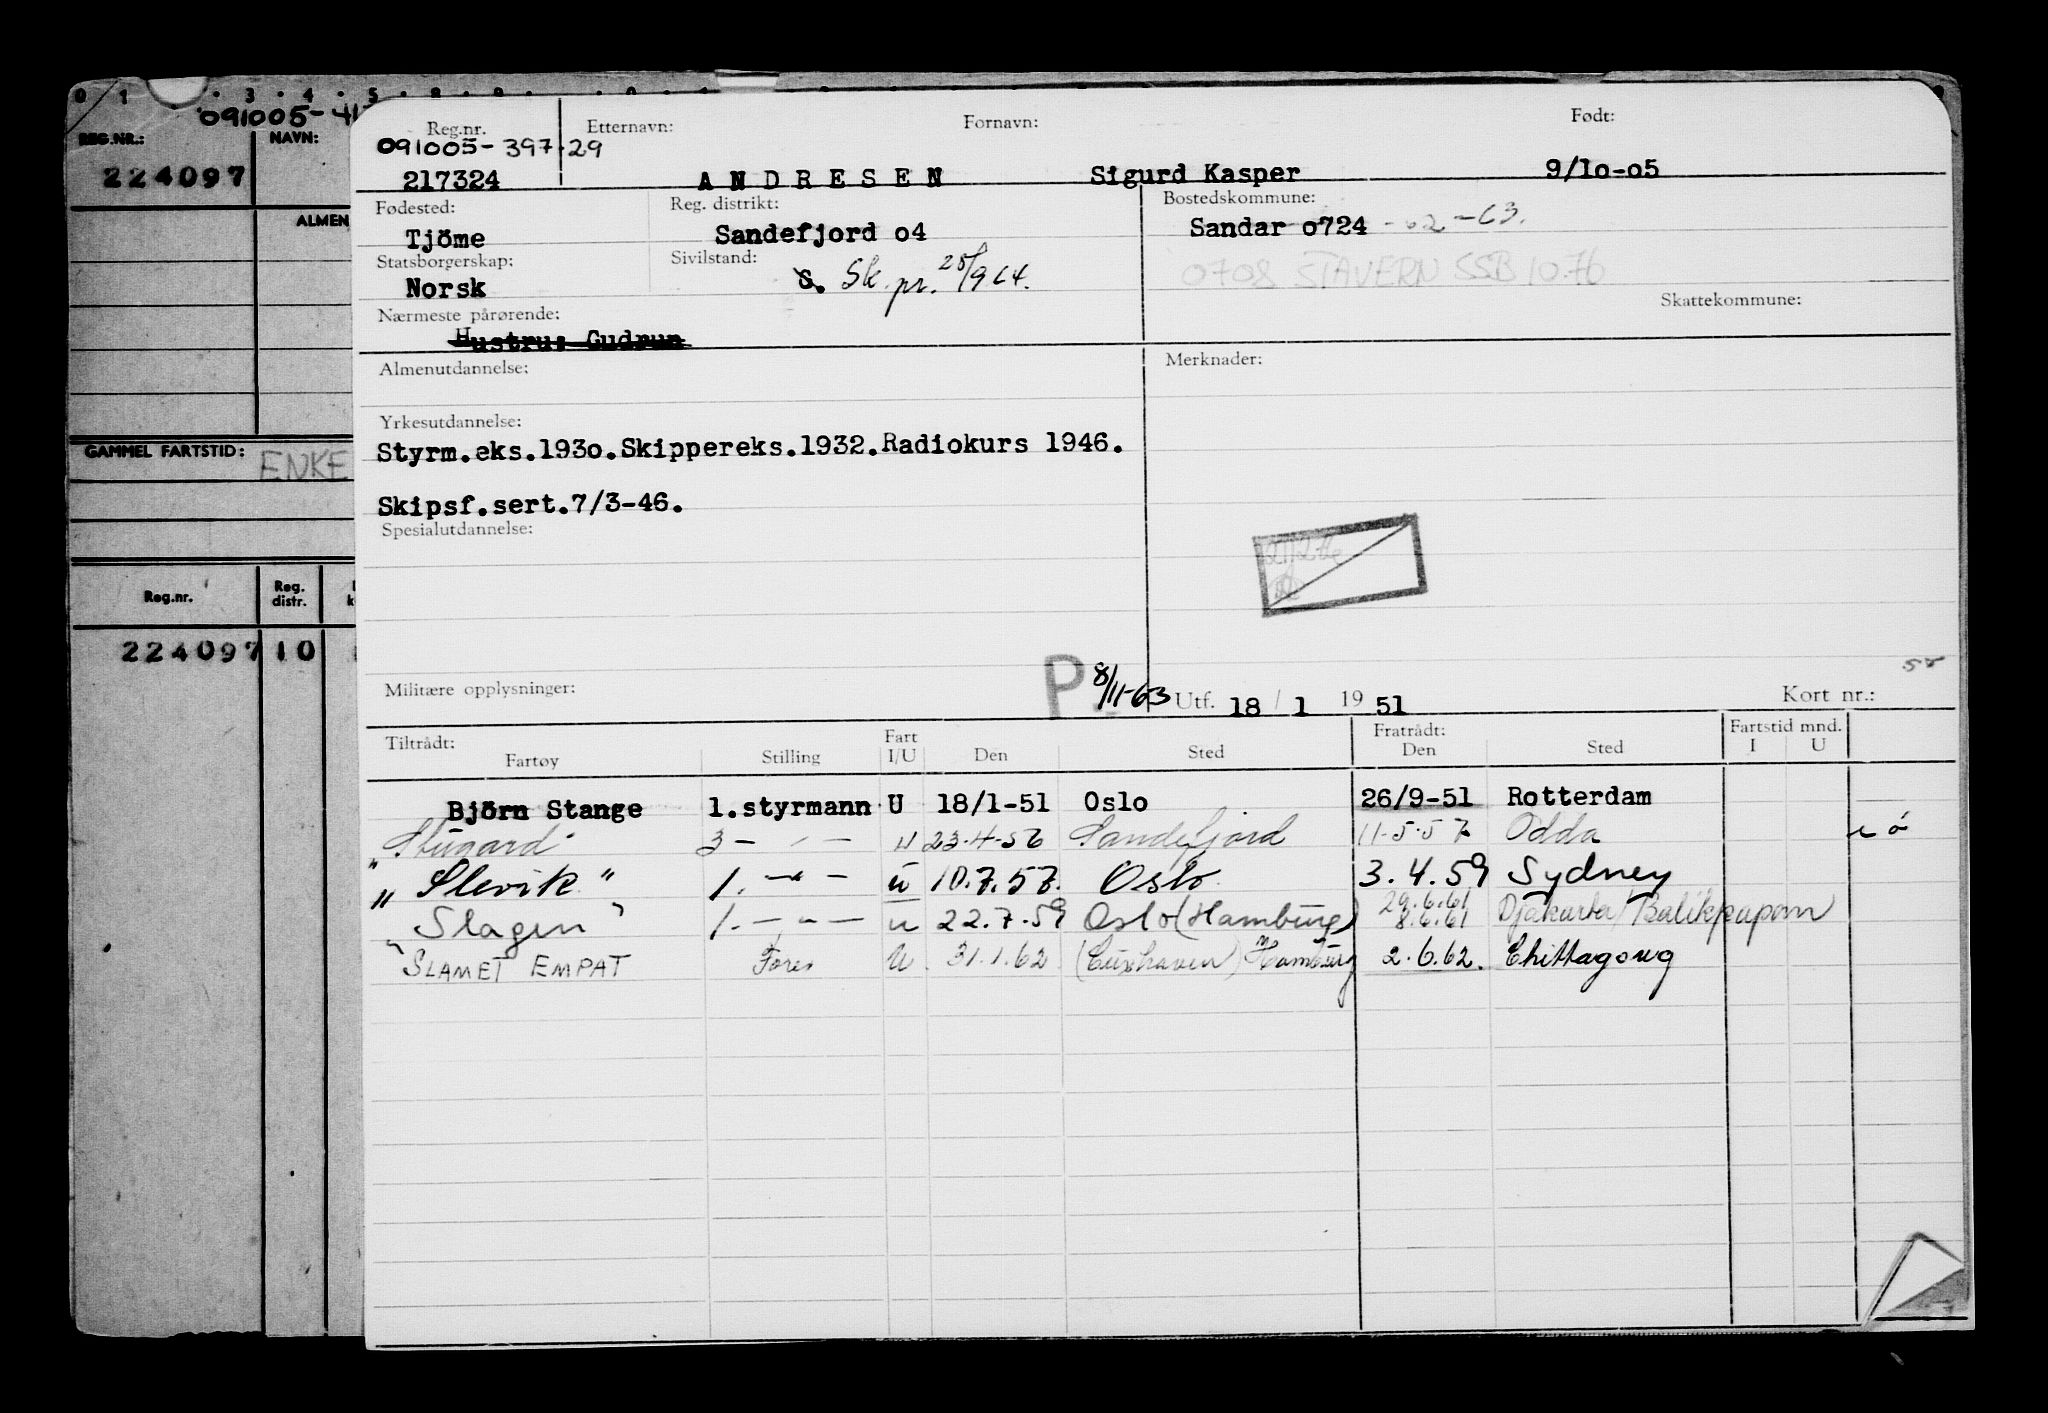 091005-41
REG.NR.: NAVN:
224097
ALMEN
GAMMEL FARTSTID: ENKE
Reg.nr. Reg. distr.
224097 10
Reg.nr. Etternavn: Fornavn: Født:
091005-397.29
217324 ANDRESEN Sigurd Kasper 9/1o-o5
Fødested: Reg. distrikt: Bostedskommune:
Tjöme Sandefjord o4 Sandar o724 -62-63.
Statsborgerskap: Sivilstand: 0708 STAVERN SSB 10.76
Norsk S. Sk. pr.
Skattekommune:
Nærmeste pårørende:
Hustru: Gudrun
Almenutdannelse: Merknader:
Yrkesutdannelse:
Styrm.eks.193o.Skippereks.1932.Radiokurs 1946.
Skipsf.sert.7/3-46.
Spesialutdannelse:
Militære opplysninger: P 8/11-63 Utf. 18 / 1 19 51 Kort nr.:
Tiltrådt: Fratrådt: Fartstid mnd.
Fartøy Stilling Fart I/U Den Sted Den Sted I U
Björn Stange 1.styrmann U 18/1-51 Oslo 26/9-51 Rotterdam
3 - " - U 23.4.56 Sandefjord 11.5.57 Odda
" Slevik " 1. - " - u 10.7.57. Oslo 3.4.59 Sydney
" Slagen " 1. - " - u 22.7.59 Oslo (Hamburg) 29.6.61 8.6.61 Djakarta/Balikpapan
" SLAMET EMPAT Fører U. 31.1.62 (Cuxhaven) Hamburg 2.6.62. Chittagong